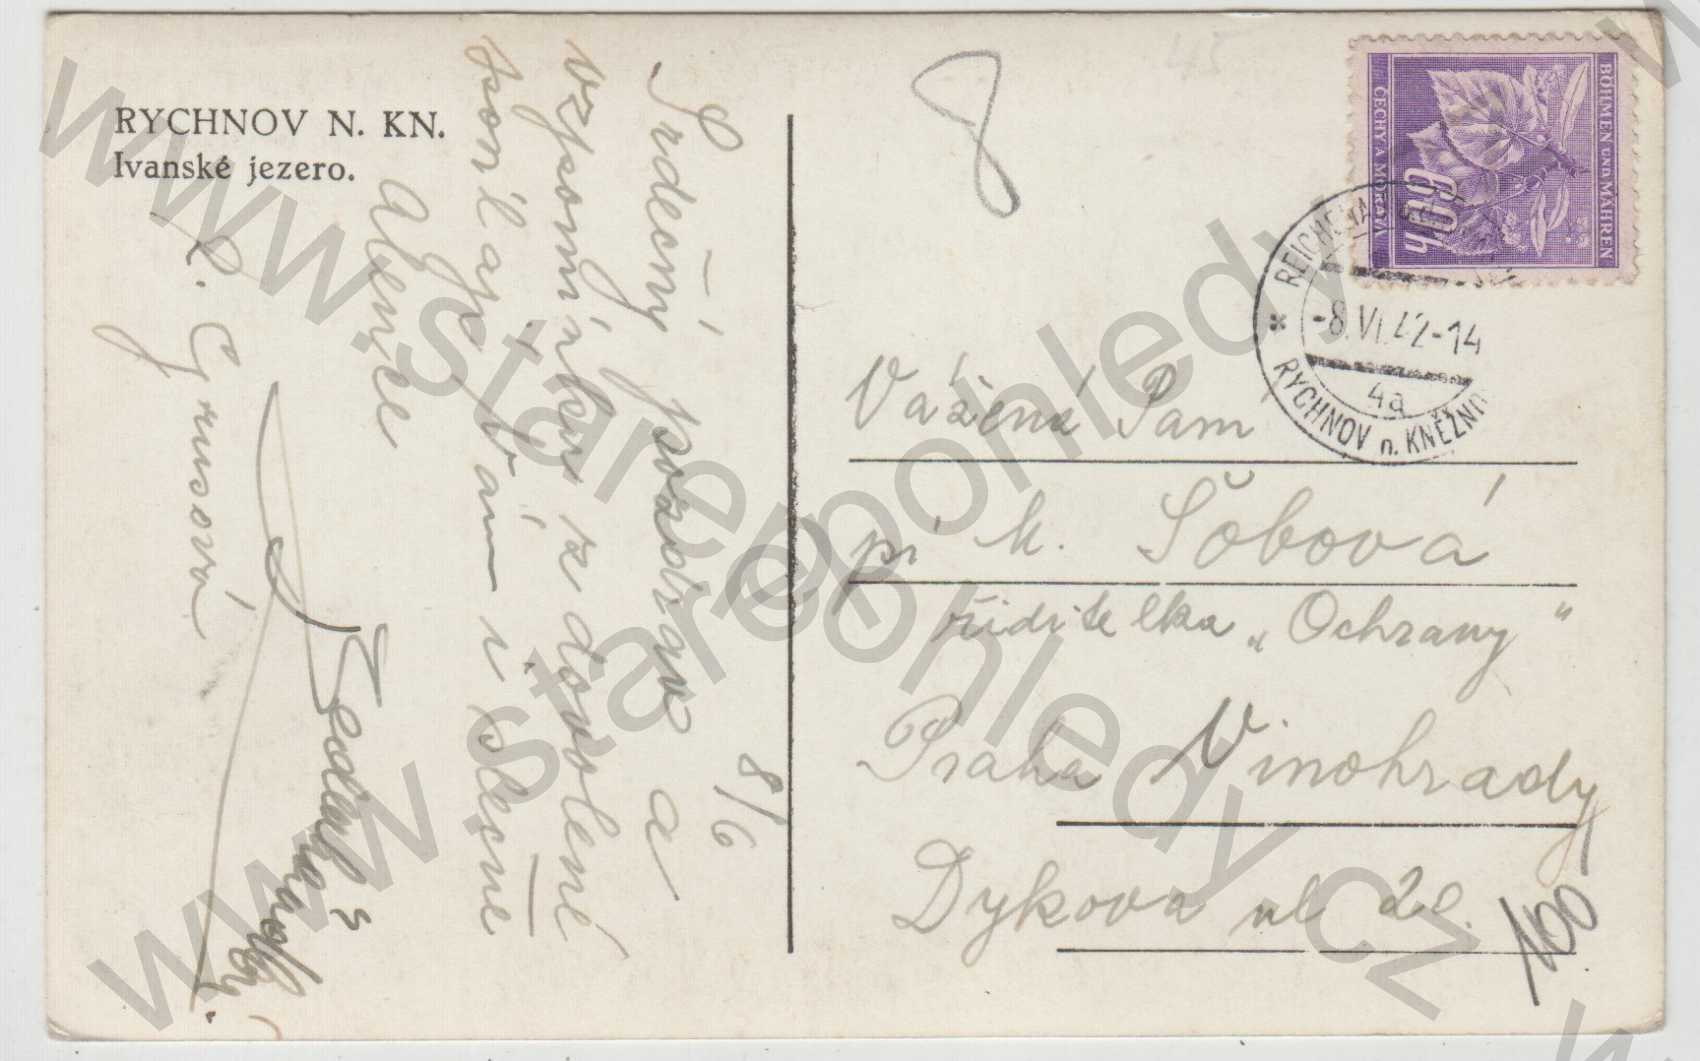 RYCHNOV N. KN.
Ivanské jezero.
8/6
Srdečný pozdrav a
vzpomínku z dovolené
Vám i slečně
Alence
8
BÖHMEN UND MÄHREN
ČECHY A MORAVA
60 h
* REICHENAU
-8.VI.42-14
4a
RYCHNOV n. KNĚŽNOU
Vážená Paní
pí M. Šobová
řiditelka „Ochrany"
Praha Vinohrady
Dykova ul 20.
www.starepohledy.cz
www.starepohledy.cz